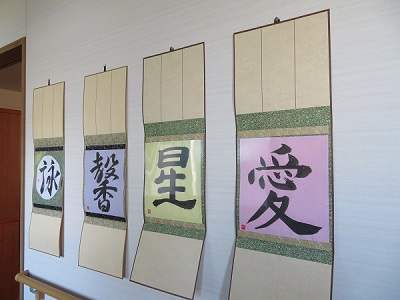 詠
馨
星
愛